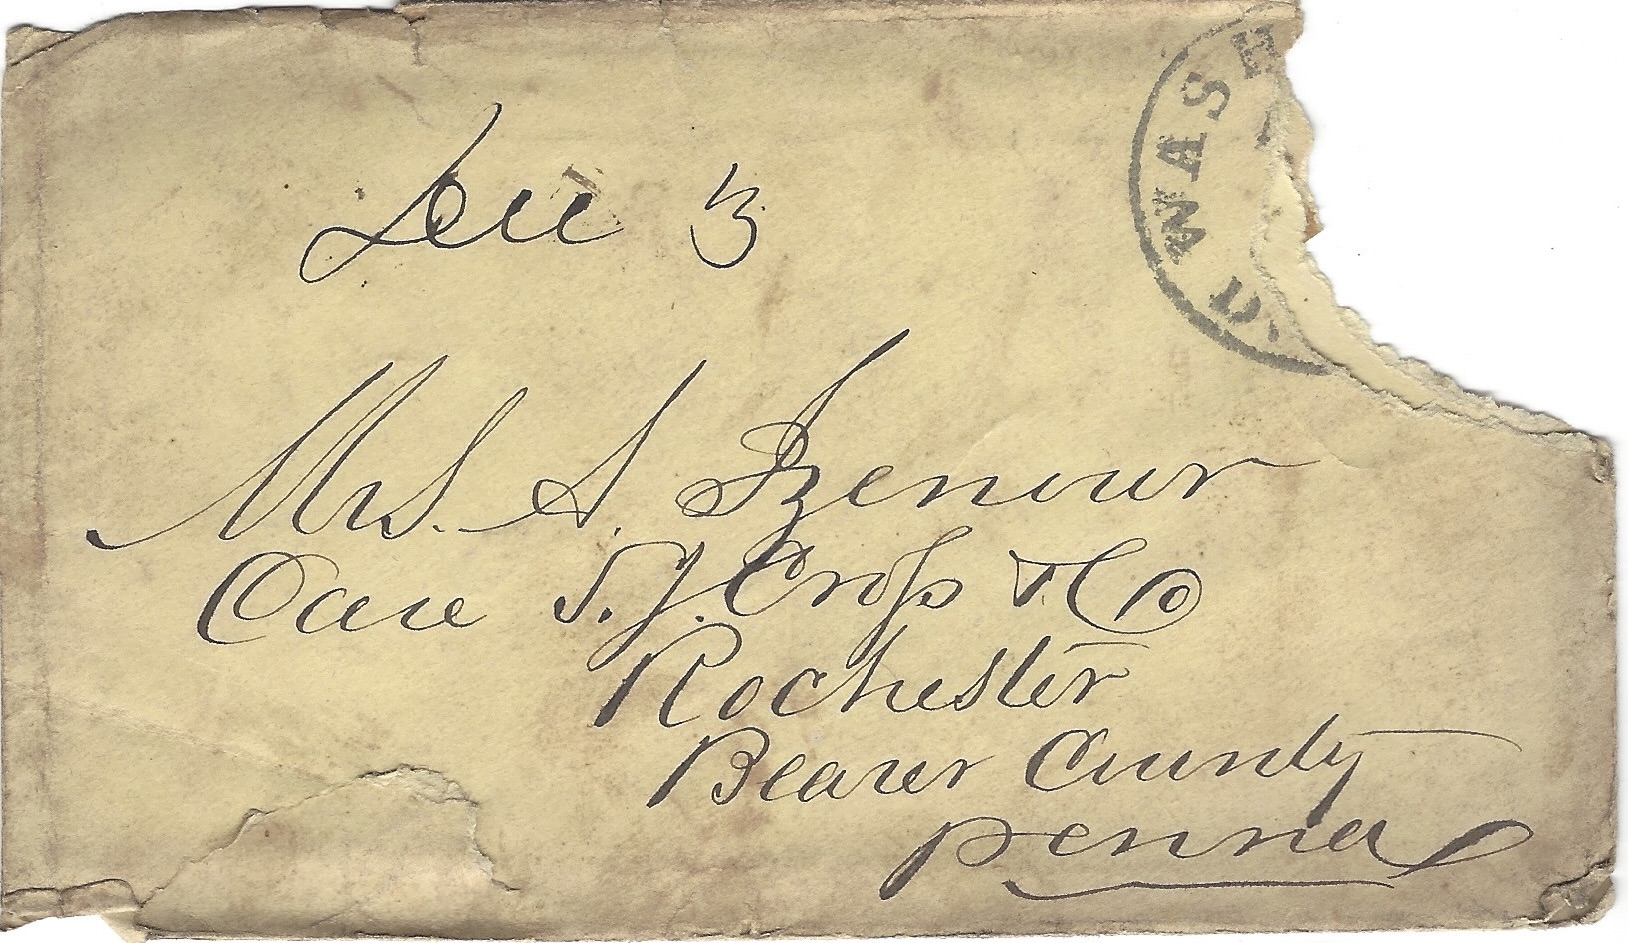 WASH
D
Due 3
Mrs. S. Izenour
Care S. J. Cross & Co
Rochester
Beaver County
Penna